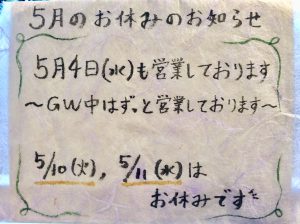 5月のお休みのお知らせ
5月4日(水)も営業しております
～GW中はずっと営業しております～
5/10(火), 5/11(水)は
お休みです